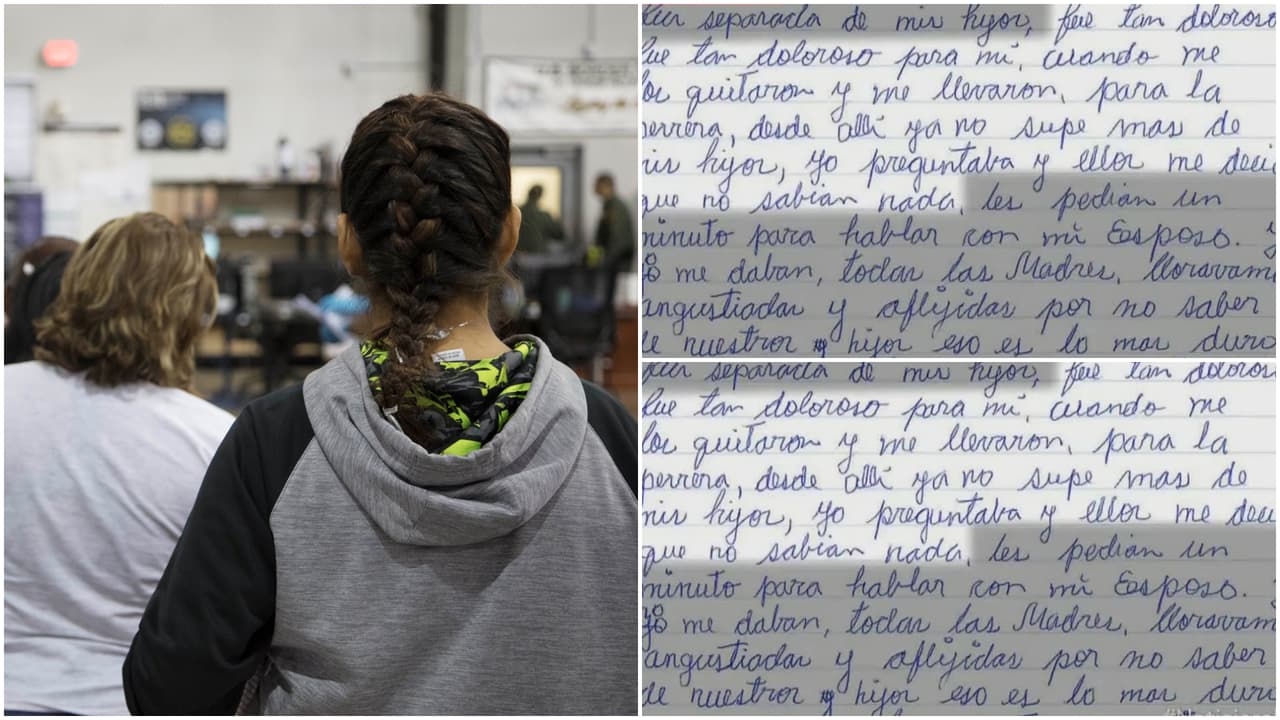 separada de mis hijos, fue tan doloroso
fue tan doloroso para mi, cuando me
los quitaron y me llevaron, para la
perrera, desde alli ya no supe mas de
mis hijos, yo preguntaba y ellos me deci
que no sabian nada, les pedian un
minuto para hablar con mi Esposo. y
no me daban, todas las Madres, lloravam
angustiadas y aflijidas por no saber
de nuestros hijos eso es lo mas duro
separada de mis hijos, fue tan doloros
fue tan doloroso para mi, cuando me
los quitaron y me llevaron, para la
perrera, desde alli ya no supe mas de
mis hijos, yo preguntaba y ellos me deci
que no sabian nada, les pedian un
minuto para hablar con mi Esposo.
no me daban, todas las Madres, lloravam
angustiadas y aflijidas por no saber
de nuestros hijos eso es lo mas duro